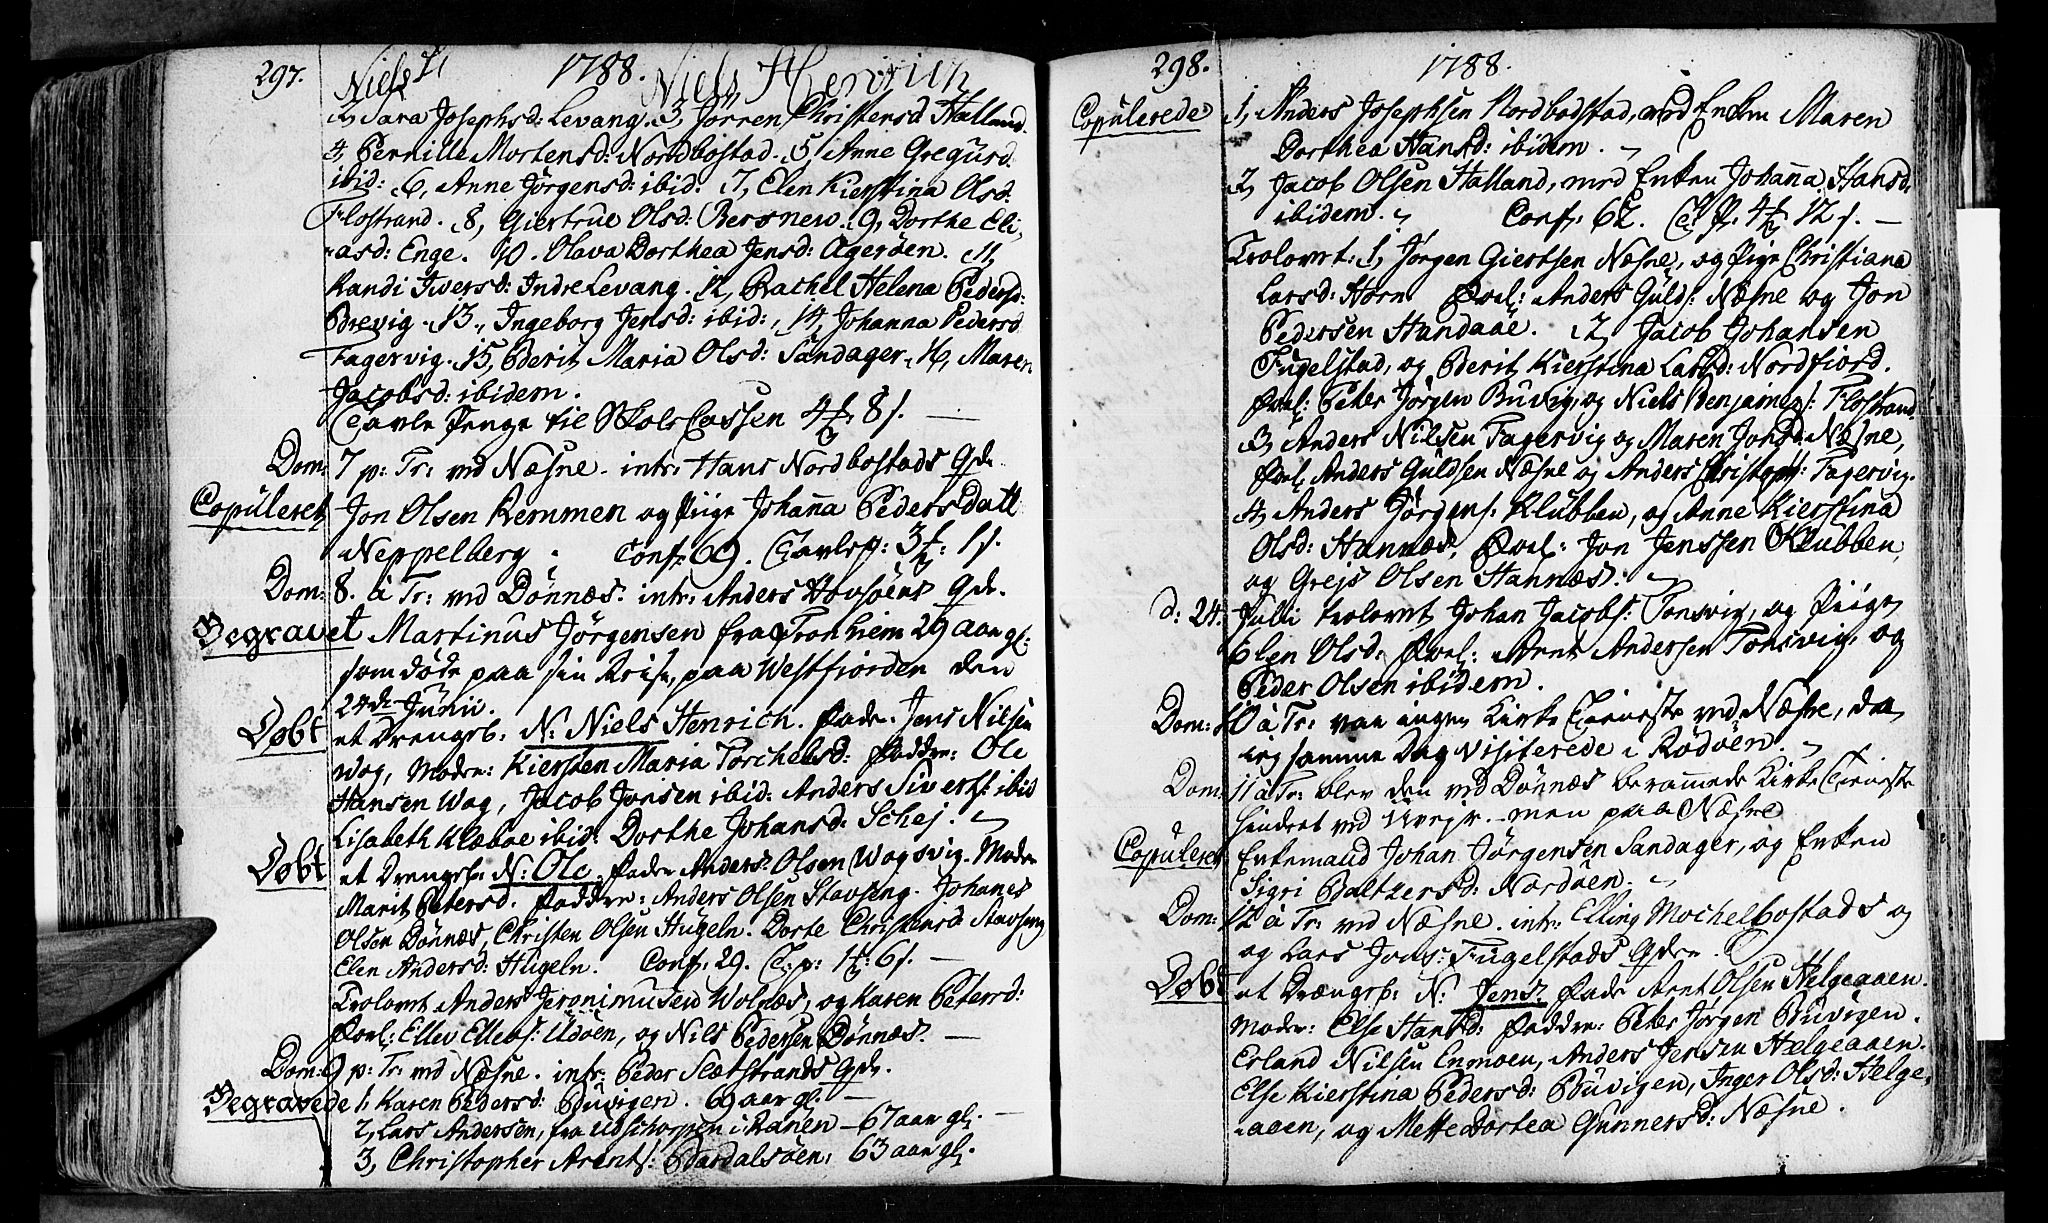 297. 1788.
Niels N Niels Henrich
2, Sara Josephsd: Levang. 3, Jörren Christensd Halland
4, Pernille Mortensd: Nordbostad. 5, Anne Gregersd:
ibid: 6, Anne Jørgensd: ibid: 7, Elen Kierstina Olsd:
Flostrand. 8, Giertrue Olsd: Bersnew. 9, Dorthe Eli,
asd: Enge. 10. Olava Dorthea Jensd: Agerøen. 11,
Randi Iwersd: Indre Levang. 12, Rachel Helena Pedersd:
Brevig. 13, Ingeborg Jensd: ibid: 14, Johanna Pedersd
Fagervig. 15, Berit Maria Olsd: Sandager. 16, Maren
Jacobsd: ibidem.
Tavle Penge til Skole Cassen 4 8 s.
Dom: 7 p: Tr: ved Næsne. intr: Hans Nordbostads Qde.
Copuleret Jon Olsen Remmen og Piige Johanna Pedersdatt
Neppelberg. Conf: 69. Tavlep: 3 1 s.
Dom: 8. à Tr: ved Dönnæs. intr: Anders Hovsøens Qde.
Begravet Martinus Jørgensen fra Tronhiem 29 aar gl:
som døde paa sin Reise, paa Westfiorden den
24de Junii.
Døbt et Drengeb: N: Niels Henrich. Fader: Jens Nilsen
Wog, Moder: Kiersten Maria Torchelsd: Faddre: Ole
Hansen Wog, Jacob Jonsen ibid: Anders Sivers: ibid
Lisabeth Klæboe ibid: Dorthe Johansd: Schej.
Døbt et Drengeb: N: Ole Fader Anders Olsen Wogsvig. Moder
Marit Petersd. Faddre: Anders Olsen Stavseng. Johanes
Olsen Dönnæs, Christen Olsen Hugeln. Dorte Christensd Stavseng
Elen Andersd: Hugeln. Conf: 29. T. p: 1 6 s.
Trolovet Anders Jeronimusen Wolnæs, og Karen Petersd:
Forl: Ellev Ellevs: Udöen, og Nils Pedersen Dönnæs.
Dom: 9 p: Tr: ved Næsne. intr: Peder Slætstrands Qde.
Begravede 1, Karen Pedersd: Buvigen. 69 aar gl:
2, Lars Andersen, fra Udschorpen i Ranen 67 aar gl:
3, Christopher Arents: Bardalsøen, 63 aar gl.
298. 1788.
Copulerede 1, Anders Josephsen Nordbostad, med Enken Maren
Dorthea Hansd: ibidem.
2, Jacob Olsen Halland, med Enken Johanna Hansd:
ibidem. Conf: 62. T. P. 4 12 s.
Trolovet: 1, Jørgen Giertsen Næsne, og Pige Christiana
Larsd: Horn Forl: Anders Guls: Næsne og Jon
Pedersen Handaae. 2, Jacob Johansen
Fugelstad, og Berit Kierstina Larsd: Nordfiord.
Forl: Peter Jørgen Buvig, og Niels Benjamins: Flostrand
3, Anders Nilsen Fagervig og Maren Jonsd: Næsne,
Forl: Anders Guldsen Næsne og Anders Christophs: Fagervig.
4, Anders Jørgens: Klubben, og Anne Kierstina
Olsd: Hannæs, Forl: Jon Jenssen Klubben,
og Grejs Olsen Hannæs.
d: 24. Julii trolovet Johan Jacobs: Tonsvig, og Piige
Elen Olsd: Forl: Arnt Andersen Tonsvig, og
Peder Olsen ibidem.
Dom: 10 à Tr: var ingen Kirke Tieneste ved Næsne, da
jeg samme Dag visiterede i Rødøen.
Dom: 11 à Tr: blev den ved Dönnæs berammede Kirke Tieneste
hindret ved Uvejr. men paa Næsne
Copuleret Enkemand Johan Jørgensen Sandager, og Enken
Sigri Baltzersd: Nordöen.
Dom: 12 à Tr: ved Næsne. intr: Elling Mochelbostads og
og Lars Jons: Fugelstads Qder.
Døbt et Drengeb: N: Jens. Fader Arnt Olsen Helgeaaen.
Moder: Else Hansd: Faddre: Peter Jørgen Buvigen.
Erland Nilsen Enmoen, Anders Jensen Helgeaaen.
Else Kierstina Pedersd: Buvigen, Inger Olsd: Helge,
aaen, og Mette Dortea Gunnersd: Næsne.